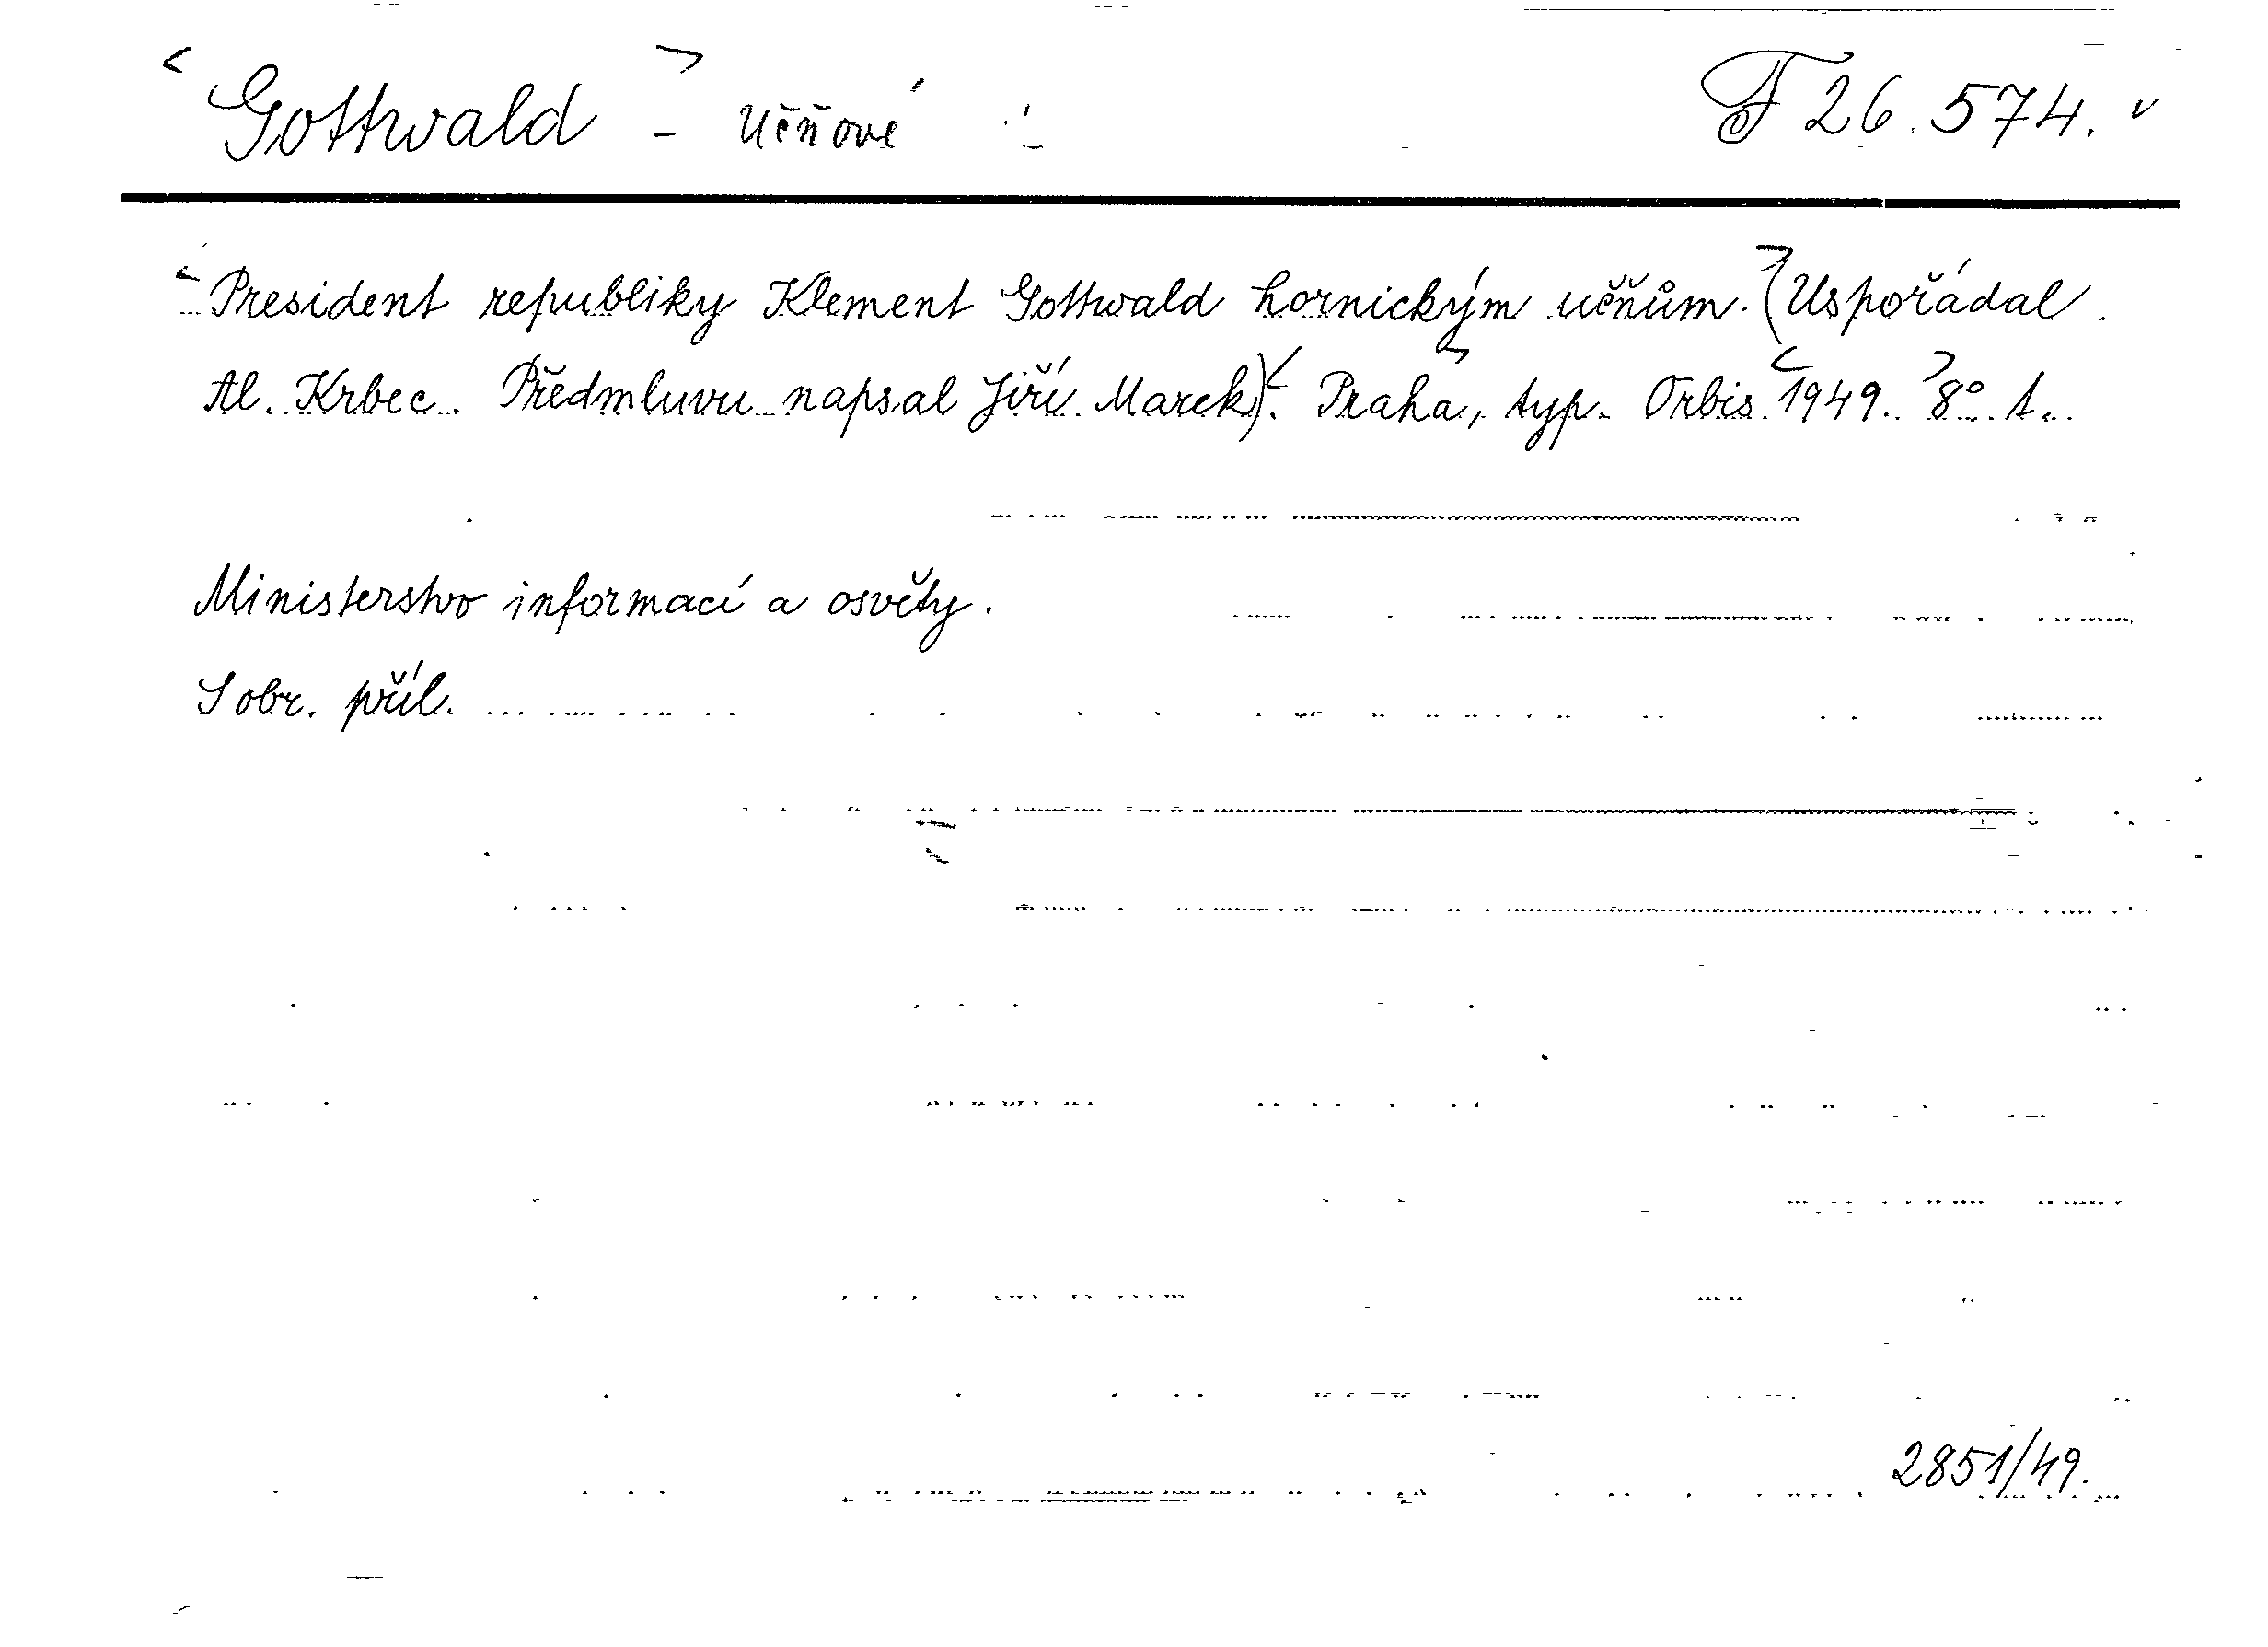 Gottwald - Učňové F 26.574.
President republiky Klement Gottwald hornickým učňům. (Uspořádal
Al. Krbec. Předmluvu napsal Jiří Marek). Praha, typ. Orbis 1949. 8° 1.
Ministerstvo informací a osvěty.
S obr. příl.
2851/49.